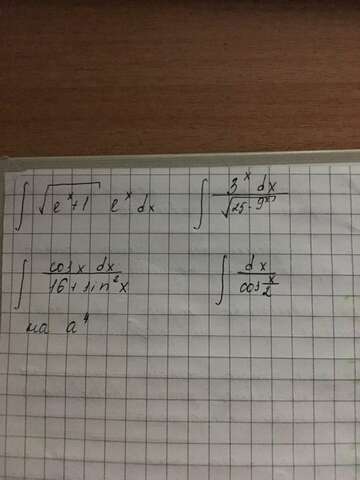 ∫ √(e^x+1) e^x dx    ∫ 3^x dx / √(25-9^x)
∫ cos x dx / (16 + sin^2 x)    ∫ dx / cos x/2
на а^4